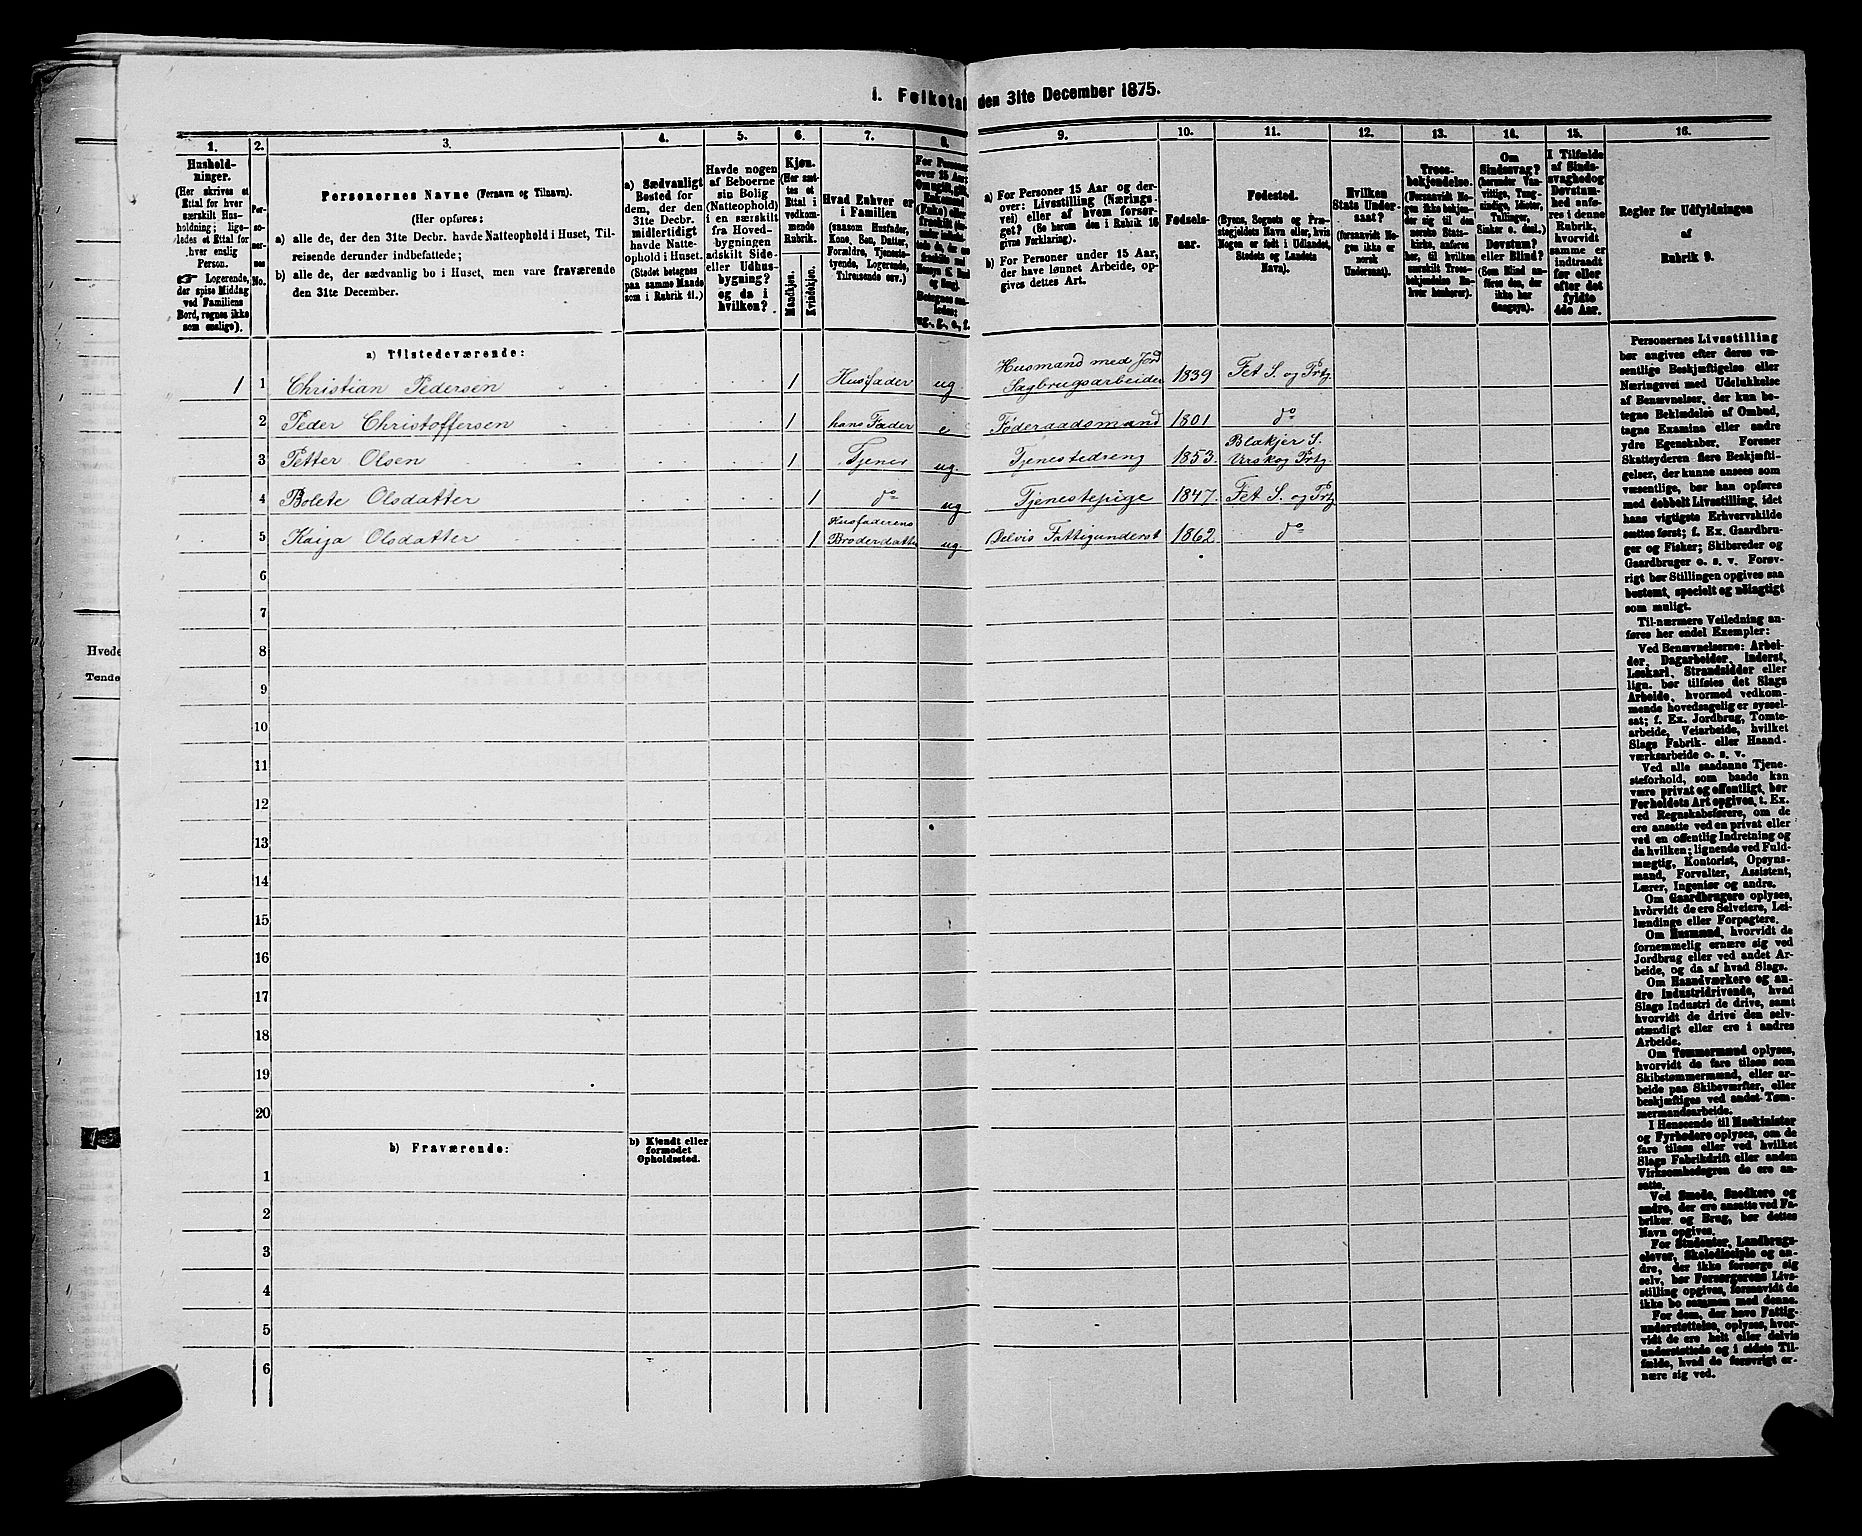 1. Folketal den 31te December 1875.
1.
2.
3.
4.
5.
6.
7.
8.
9.
10.
11.
12.
13.
14.
15.
16.
Hushold-
ninger.
(Her skrives et
Ettal for hver
særskilt Hus-
holdning; lige-
ledes et Ettal for
hver enslig
Person.
☞ Logerende,
der spise Middag
ved Familiens
Bord, regnes ikke
som enslige).
Per-
so-
ner-
nes
No.
Personernes Navne (Fornavn og Tilnavn).
(Her opføres:
a) alle de, der den 31te Decbr. havde Natteophold i Huset, Til-
reisende derunder indbefattede;
b) alle de, der sædvanlig bo i Huset, men vare fraværende
den 31te December.
a) Sædvanligt
Bosted for
dem, der den
31te Decbr.
midlertidigt
havde Natte-
ophold i Huset.
(Stedet betegnes
paa samme Maade
som i Rubrik 11.)
Havde nogen
af Beboerne
sin Bolig
(Natteophold)
i en særskilt
fra Hoved-
bygningen
adskilt Side-
eller Udhus-
bygning?
og da i
hvilken?
Kjøn.
(Her sæt-
tes et
Ettal i
vedkom-
mende
Rubrik.
Mandkjøn.
Kvindekjøn.
Hvad Enhver er
i Familien
(saasom Husfader,
Kone, Søn, Datter,
Forældre, Tjeneste-
tyende, Logerende,
Tilreisende osv.)
For Personer
over 15 Aar:
ug., g., e., f.
a) For Personer 15 Aar og der-
over: Livsstilling (Nærings-
vei) eller af hvem forsør-
get? (Se herom den i Rubrik 16
givne Forklaring).
b) For Personer under 15 Aar,
der have lønnet Arbeide, op-
gives dettes Art.
Fødsels-
aar.
Fødested.
(Byens, Sognets og Præ-
stegjeldets Navn eller, hvis
Nogen er født i Udlandet,
Stedets og Landets
Navn).
Hvilken
Stats Under-
saat?
(forsaavidt No-
gen ikke er
norsk
Undersaat).
Troes-
bekjendelse.
(Forsaavidt No-
gen ikke bekjen-
der sig til den
norske Stats-
kirke, anføres
her, til hvilken
særskilt Troes-
bekjendelse En-
hver henhører).
Om
Sindssvag?
(herunder Van-
vittige, Tung-
sindige, Idioter,
Tullinger,
Sinker o. desl.)
Døvstum?
eller Blind?
(Som Blind an-
føres den, der
ikke har
Gangsyn).
I Tilfælde
af Sinds-
svaghed og
Døvstum-
hed anfø-
res i denne
Rubrik,
hvorvidt
samme er
indtraadt
før eller
efter det
fyldte
4de Aar.
Regler for Udfyldningen
af
Rubrik 9.
a) Tilstedeværende:
1 1 Christian Pedersen 1 Husfader ug Husmand med Jord Sagbrugsarbeider 1839 Fet S. og Prtg
2 Peder Christoffersen 1 hans Fader e Føderaadsmand 1801 do
3 Petter Olsen 1 Tjener ug Tjenestedreng 1853. Blakjer S. Urskog Prtg.
4 Bolete Olsdatter 1 do ug Tjenestepige 1847. Fet S. og Prtg
5 Kaija Olsdatter 1 Husfaderens Broderdatter ug Delvis Fattigunderst 1862 do
6
7
8
9
10
11
12
13
14
15
16
17
18
19
20
b) Fraværende:
b) Kjendt eller
formodet
Opholdssted.
1
2
3
4
5
6
Personernes Livsstilling
bør angives efter deres væ-
sentlige Beskjæftigelse eller
Næringsvei med Udelukkelse
af Benævnelser, der kun be-
tegne Beklædelse af Ombud,
tagne Examina eller andre
ydre Egenskaber. Forener
Skatteyderen flere Beskjæfti-
gelser, der kunne ansees som
væsentlige, bør han opføres
med dobbelt Livsstilling, idet
hans vigtigste Erhvervskilde
sættes først; f. Ex. Gaardbru-
ger og Fisker; Skibsreder og
Gaardbruger o. s. v. Forøv-
rigt bør Stillingen opgives saa
bestemt, specielt og nøiagtigt
som muligt.
Til nærmere Veiledning an-
føres her endel Exempler:
Ved Benævnelserne: Arbei-
der, Dagarbeider, Inderst,
Løskarl, Strandsidder eller
lign. bør tilføies det Slags
Arbeide, hvormed vedkom-
mende hovedsagelig er syssel-
sat; f. Ex. Jordbrug, Tomte-
arbeide, Veiarbeide, hvilket
Slags Fabrik- eller Haand-
værksarbeide o. s. v.
Ved alle saadanne Tjene-
steforhold, som baade kan
være privat og offentligt, bør
Forholdets Art opgives, t. Ex.
ved Regnskabsførere, om de
ere ansatte ved en privat eller
ved en offentlig Indretning og
da hvilken; lignende ved Fuld-
mægtig, Kontorist, Opsyns-
mand, Forvalter, Assistent,
Lærer, Ingeniør og andre.
Om Gaardbrugere oplyses,
hvorvidt de ere Selveiere, Lei-
lændinge eller Forpagtere.
Om Husmænd, hvorvidt de
fornemmelig ernære sig ved
Jordbrug eller ved andet Ar-
beide, og da af hvad Slags.
Om Haandværkere og an-
dre Industridrivende, hvad
Slags Industri de drive, samt
hvorvidt de drive den selv-
stændigt eller ere i andres
Arbeide.
Om Tømmermænd oplyses,
hvorvidt de fare tilsøs som
Skibstømmermænd, eller ar-
beide paa Skibsværfter, eller
beskjæftiges ved andet Tøm-
mermandsarbeide.
I Henseende til Maskinister
og Fyrbødere oplyses, om de
fare tilsøs eller ved hvilket
Slags Fabrikdrift eller anden
Virksomhedsgren de ere an-
satte.
Ved Smede, Snedkere og
andre, der ere ansatte ved Fa-
briker og Brug, bør dettes
Navn opgives.
For Studenter, Landbrugs-
elever, Skoledisciple og an-
dre, der ikke forsørge sig
selv, bør Forsørgerens Livs-
stilling opgives, forsaavidt de
ikke bo sammen med denne.
For dem, der have Fattig-
understøttelse, oplyses, hvor-
vidt de ere helt eller delvis
understøttede og i sidste Til-
fælde, hvad de forøvrigt er-
nære sig ved.
Hvede
Tønde